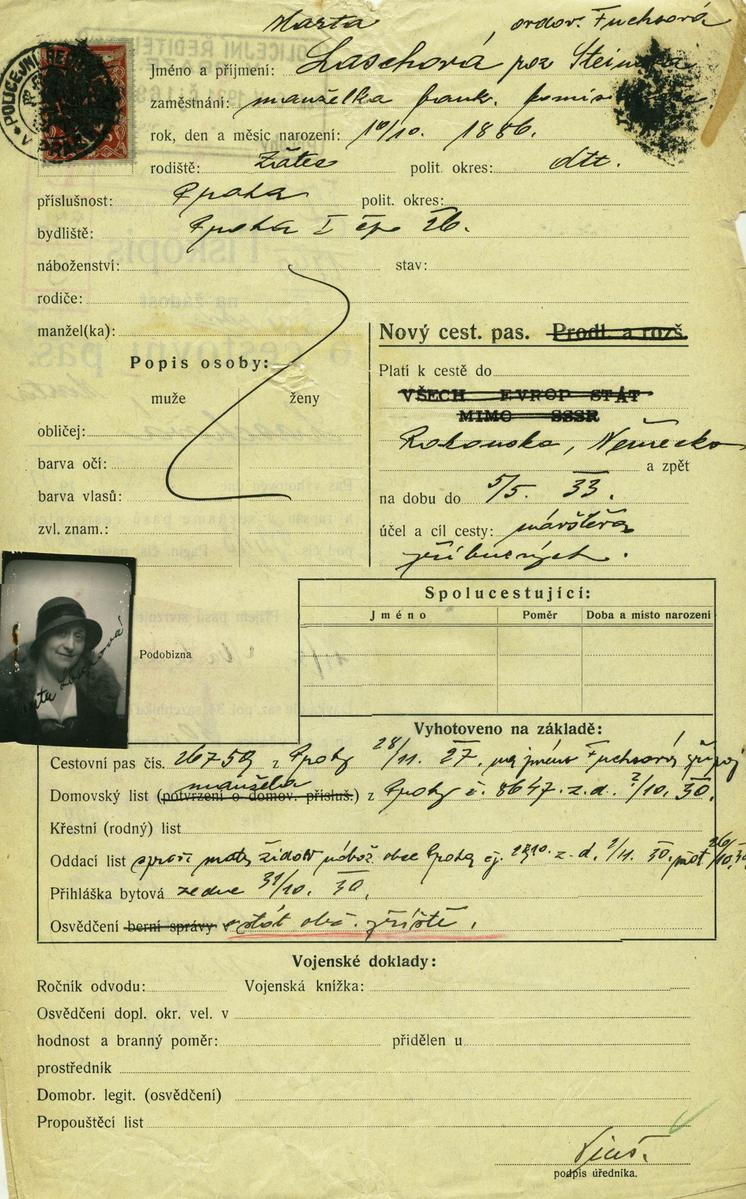 Marta, ovdov. Fuchsová
Jméno a příjmení: Laschová roz
zaměstnání: manželka bank.
rok, den a měsíc narození: 10/10. 1886.
rodiště: Žatec polit. okres: dtt.
příslušnost: Praha polit. okres:
bydliště: Praha I čp. 26.
náboženství: stav:
rodiče:
manžel(ka):
Popis osoby:
muže ženy
obličej:
barva očí:
barva vlasů:
zvl. znam.:
Nový cest. pas. Prodl. a rozš.
Platí k cestě do
VŠECH EVROP STÁT
MIMO SSSR
Rakouska, Německo
a zpět
na dobu do 5/5. 33.
účel a cíl cesty: návštěva
příbuzných.
Podobizna
Spolucestující:
Jméno Poměr Doba a místo narození
Vyhotoveno na základě:
Cestovní pas čís. 26759 z Prahy 28/11. 27. na jméno Fuchsová
manžela
Domovský list (potvrzení o domov. přísluš.) z Prahy č. 8647. z. d. 30.
Křestní (rodný) list
Oddací list židov. nábož. obce Praha čj. z. d. 30.
Přihláška bytová ze dne 31/10. 30.
Osvědčení berní správy stát. obč.
Vojenské doklady:
Ročník odvodu: Vojenská knížka:
Osvědčení dopl. okr. vel. v
hodnost a branný poměr: přidělen u
prostředník
Domobr. legit. (osvědčení)
Propouštěcí list
podpis úředníka.